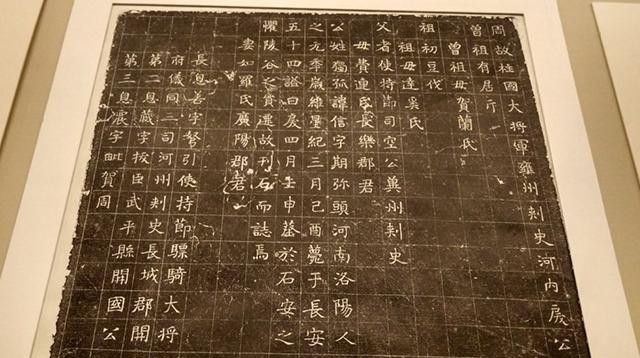 周故柱國大將軍雍州刾史河内戾公
曾祖有居斤
曾祖母賀蘭氏
祖初豆伐
祖母達奚氏
父者使持節司空公冀州刾史
母費連氏長樂郡君
公姓獨孤諱信字期弥頭河南洛陽人
之元年歲維星紀三月己酉薨于長安
五十四謚曰戾四月壬申葬於石安之
懼陵谷之貿遷故刊石而誌焉
妻如羅氏廣陽郡君
長息善字弩引使持節驃騎大將
府儀同三司河州刾史長城郡開
第二息藏字拔臣武平縣開國公
第三息震字毗賀周